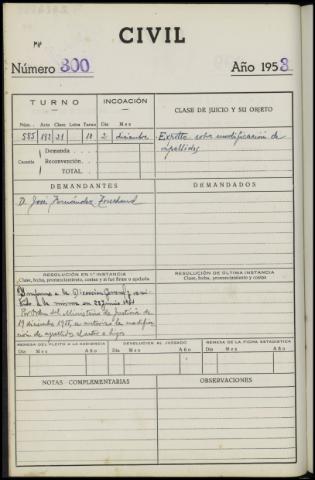 CIVIL
Número 800
Año 1958
TURNO
INCOACIÓN
CLASE DE JUICIO Y SU OBJETO
Núm. Año Clase Letra Tarea Día Mes
585 21 10 2 diciembre
Exhorto sobre modificación de
apellidos
Cuantía
Demanda
Reconvención
TOTAL
DEMANDANTES
DEMANDADOS
D. José Fernández
RESOLUCIÓN EN 1ª INSTANCIA
Clase, fecha, pronunciamiento, costas y si fué firme o apelada
RESOLUCIÓN DE ÚLTIMA INSTANCIA
Clase, fecha, pronunciamiento y costas
Informe a la Dirección General y
la misma en
Por Orden del Ministerio de Justicia de
19 diciembre se autorizó la modifica
ción de apellidos al actor e hijos
REMESA DEL PLEITO A LA AUDIENCIA
DEVOLUCIÓN AL JUZGADO
REMESA DE LA FICHA ESTADÍSTICA
Día Mes Año Día Mes Año Día Mes Año
NOTAS COMPLEMENTARIAS
OBSERVACIONES